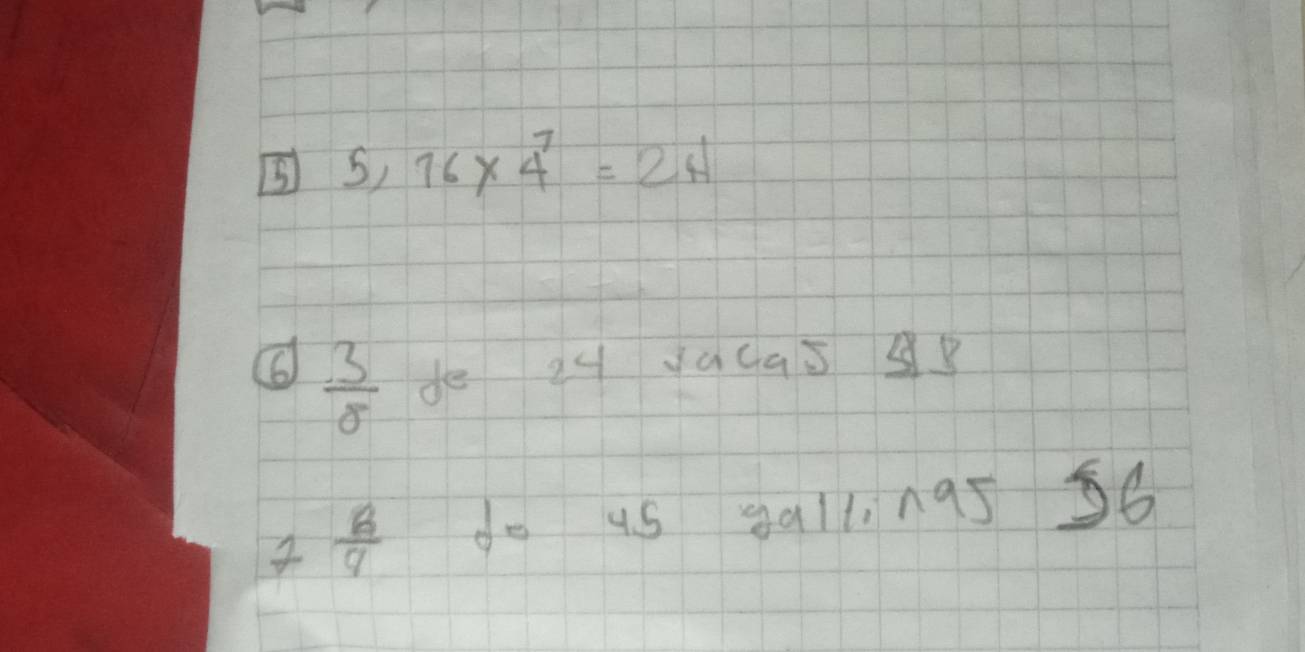 5 5,76 x 4 7 = 24
6 3/8 de 24 vacas 8
7 8/9 de 45 gallinas 56